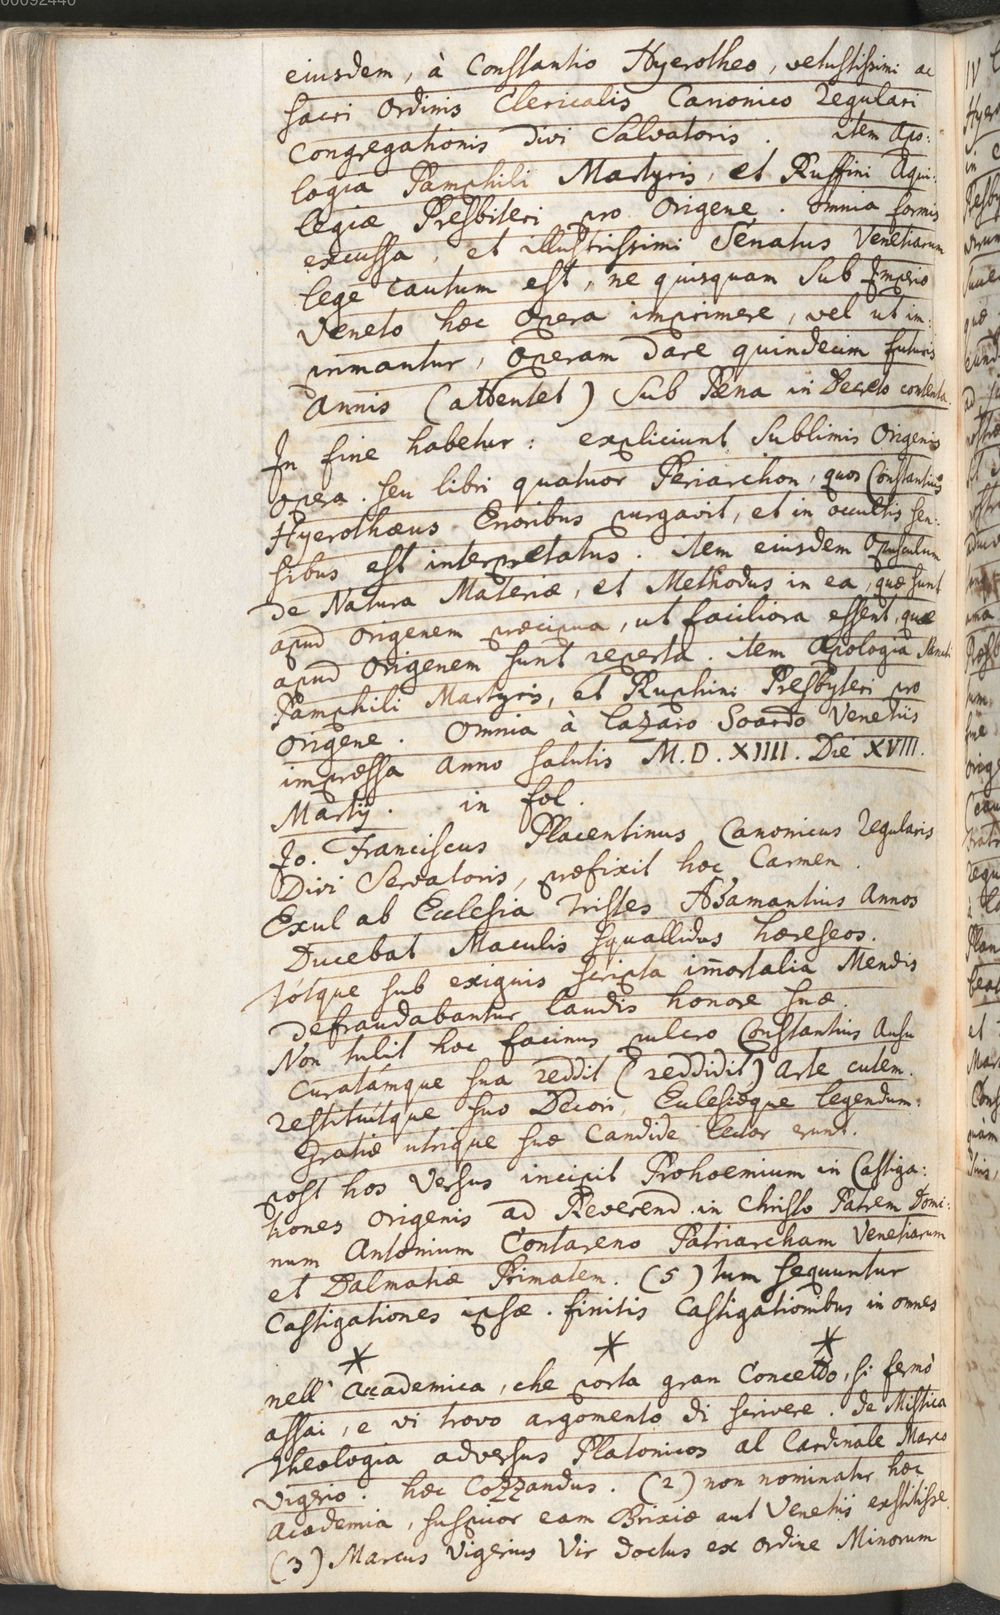 00092440
eiusdem, à Constantio Hyerotheo, vetustissimi ac
sacri Ordinis Clericalis Canonico Regulari
Congregationis Divi Salvatoris. item Apo:
logia Pamphili Martyris, et Ruffini Aqui:
legiæ Presbiteri pro Origene. omnia formis
excussa, et illustrissimi Senatus Venetiarum
lege cautum est, ne quisquam sub Imperio
Veneto hæc Opera imprimere, vel ut im:
primantur, Operam dare quindecim futuris
Annis (attentet) sub Pæna in Decreto contenta
In fine habetur: expliciunt sublimis Origenis
opera. seu libri quatuor Periarchon, quos Constantius
Hyerothæus Erroribus purgavit, et in occultis sen:
sibus est interpretatus. item eiusdem Opusculum
de Natura Materiæ, et Methodus in ea, quæ sunt
apud Origenem præcipua, ut faciliora essent, quæ
apud Origenem sunt reperta. item Apologia Sancti
Pamphili Martyris, et Ruphini Presbyteri pro
Origene. Omnia à Lazaro Soardo Venetiis
impressa Anno Salutis M.D.XIIII. Die XVIII.
Martij. in fol.
Jo. Franciscus Placentinus Canonicus Regularis
Divi Servatoris, præfixit hoc Carmen.
Exul ab Ecclesia tristes Adamantius Annos
Ducebat Maculis squallidus hæreseos.
totque sub exiguis scripta im̄ortalia Mendis
defraudabantur laudis honore suæ.
Non tulit hoc facinus pulcro Constantius Ausu
Curatámque sua reddit (reddidit) Arte cutem.
restituitque suo Decori, Eclesiæque legendum:
Gratiæ utrique suæ Candide lector erunt.
post hos Versus incipit Prohoemium in Castiga:
tiones Origenis ad Reverend. in Christo Patrem Domi:
num Antonium Contareno Patriarcham Venetiarum
et Dalmatiæ Primatem. (5) tum sequuntur
Castigationes ipsæ. finitis Castigationibus in omnes
* * *
nell' Accademica, che porta gran Concetto, si fermò
assai, e vi trovo argomento di scrivere. de Mistica
theologia adversus Platonicos al Cardinale Marco
Vigerio. hæc Cozzandus. (2) non nominatur hæc
Academia, suspicor eam Brixiæ aut Venetii exstitisse.
(3) Marcus Vigerius Vir doctus ex Ordine Minorum